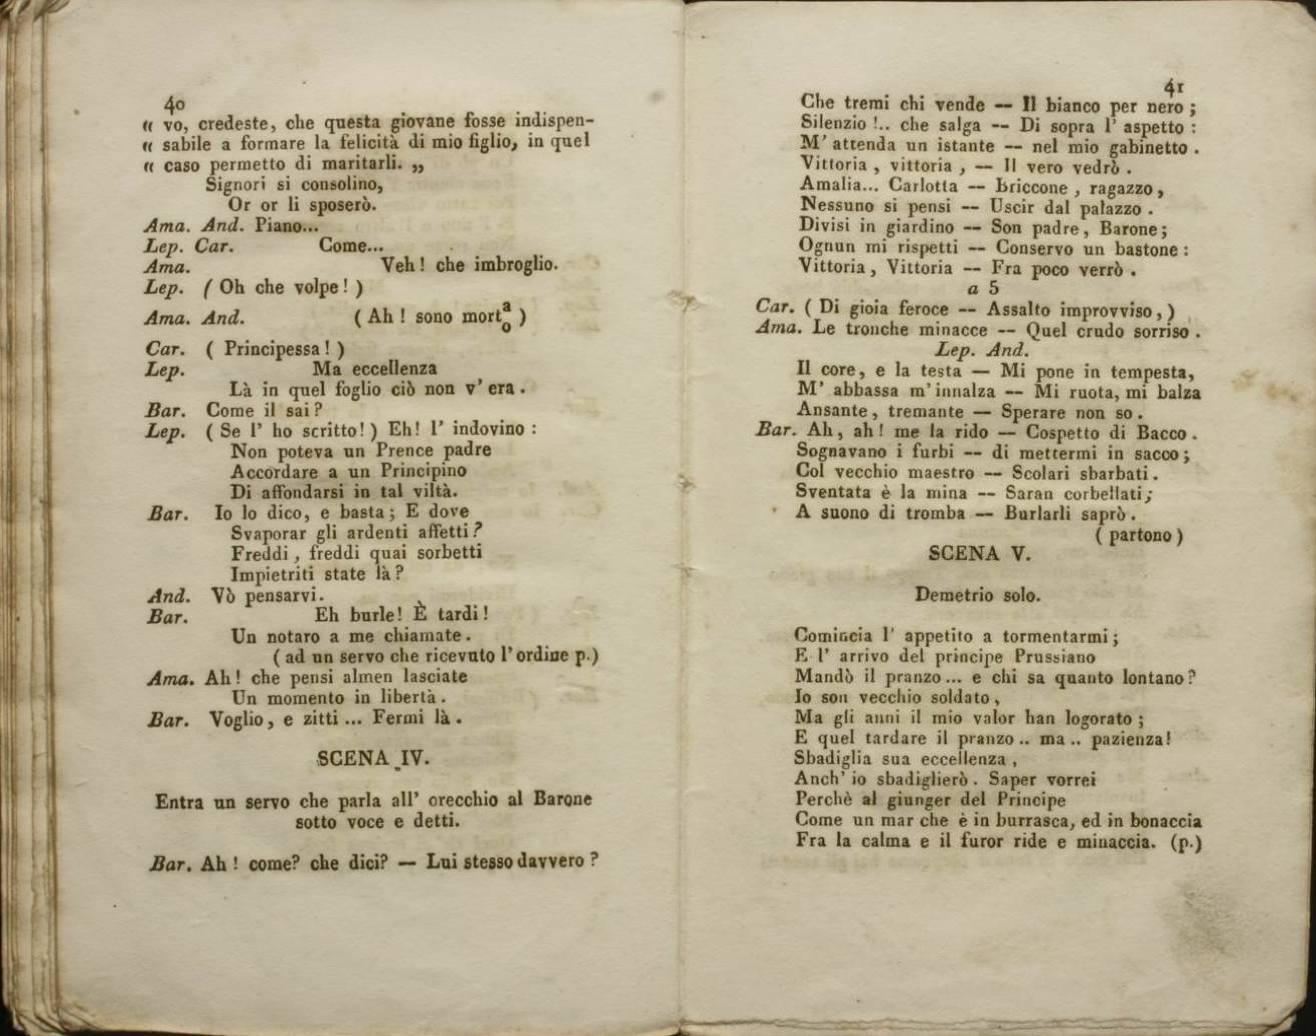 40
« vo, credeste, che questa giovane fosse indispen-
« sabile a formare la felicità di mio figlio, in quel
« caso permetto di maritarli. „
Signori si consolino,
Or or li sposerò.
Ama. And. Piano...
Lep. Car. Come...
Ama. Veh! che imbroglio.
Lep. ( Oh che volpe! )
Ama. And. ( Ah! sono mort a o )
Car. ( Principessa! )
Lep. Ma eccellenza
Là in quel foglio ciò non v' era.
Bar. Come il sai?
Lep. ( Se l' ho scritto! ) Eh! l' indovino:
Non poteva un Prence padre
Accordare a un Principino
Di affondarsi in tal viltà.
Bar. Io lo dico, e basta; E dove
Svaporar gli ardenti affetti?
Freddi, freddi quai sorbetti
Impietriti state là?
And. Vò pensarvi.
Bar. Eh burle! È tardi!
Un notaro a me chiamate.
( ad un servo che ricevuto l' ordine p.)
Ama. Ah! che pensi almen lasciate
Un momento in libertà.
Bar. Voglio, e zitti ... Fermi là.
SCENA IV.
Entra un servo che parla all' orecchio al Barone
sotto voce e detti.
Bar. Ah! come? che dici? — Lui stesso davvero?
41
Che tremi chi vende — Il bianco per nero;
Silenzio!.. che salga — Di sopra l' aspetto:
M' attenda un istante — nel mio gabinetto.
Vittoria, vittoria, — Il vero vedrò.
Amalia... Carlotta — Briccone, ragazzo,
Nessuno si pensi — Uscir dal palazzo.
Divisi in giardino — Son padre, Barone;
Ognun mi rispetti — Conservo un bastone:
Vittoria, Vittoria — Fra poco verrò.
a 5
Car. ( Di gioia feroce — Assalto improvviso, )
Ama. Le tronche minacce — Quel crudo sorriso.
Lep. And.
Il core, e la testa — Mi pone in tempesta,
M' abbassa m' innalza — Mi ruota, mi balza
Ansante, tremante — Sperare non so.
Bar. Ah, ah! me la rido — Cospetto di Bacco.
Sognavano i furbi — di mettermi in sacco;
Col vecchio maestro — Scolari sbarbati.
Sventata è la mina — Saran corbellati;
A suono di tromba — Burlarli saprò.
( partono )
SCENA V.
Demetrio solo.
Comincia l' appetito a tormentarmi;
E l' arrivo del principe Prussiano
Mandò il pranzo... e chi sa quanto lontano?
Io son vecchio soldato,
Ma gli anni il mio valor han logorato;
E quel tardare il pranzo.. ma.. pazienza!
Sbadiglia sua eccellenza,
Anch' io sbadiglierò. Saper vorrei
Perchè al giunger del Principe
Come un mar che è in burrasca, ed in bonaccia
Fra la calma e il furor ride e minaccia. (p.)